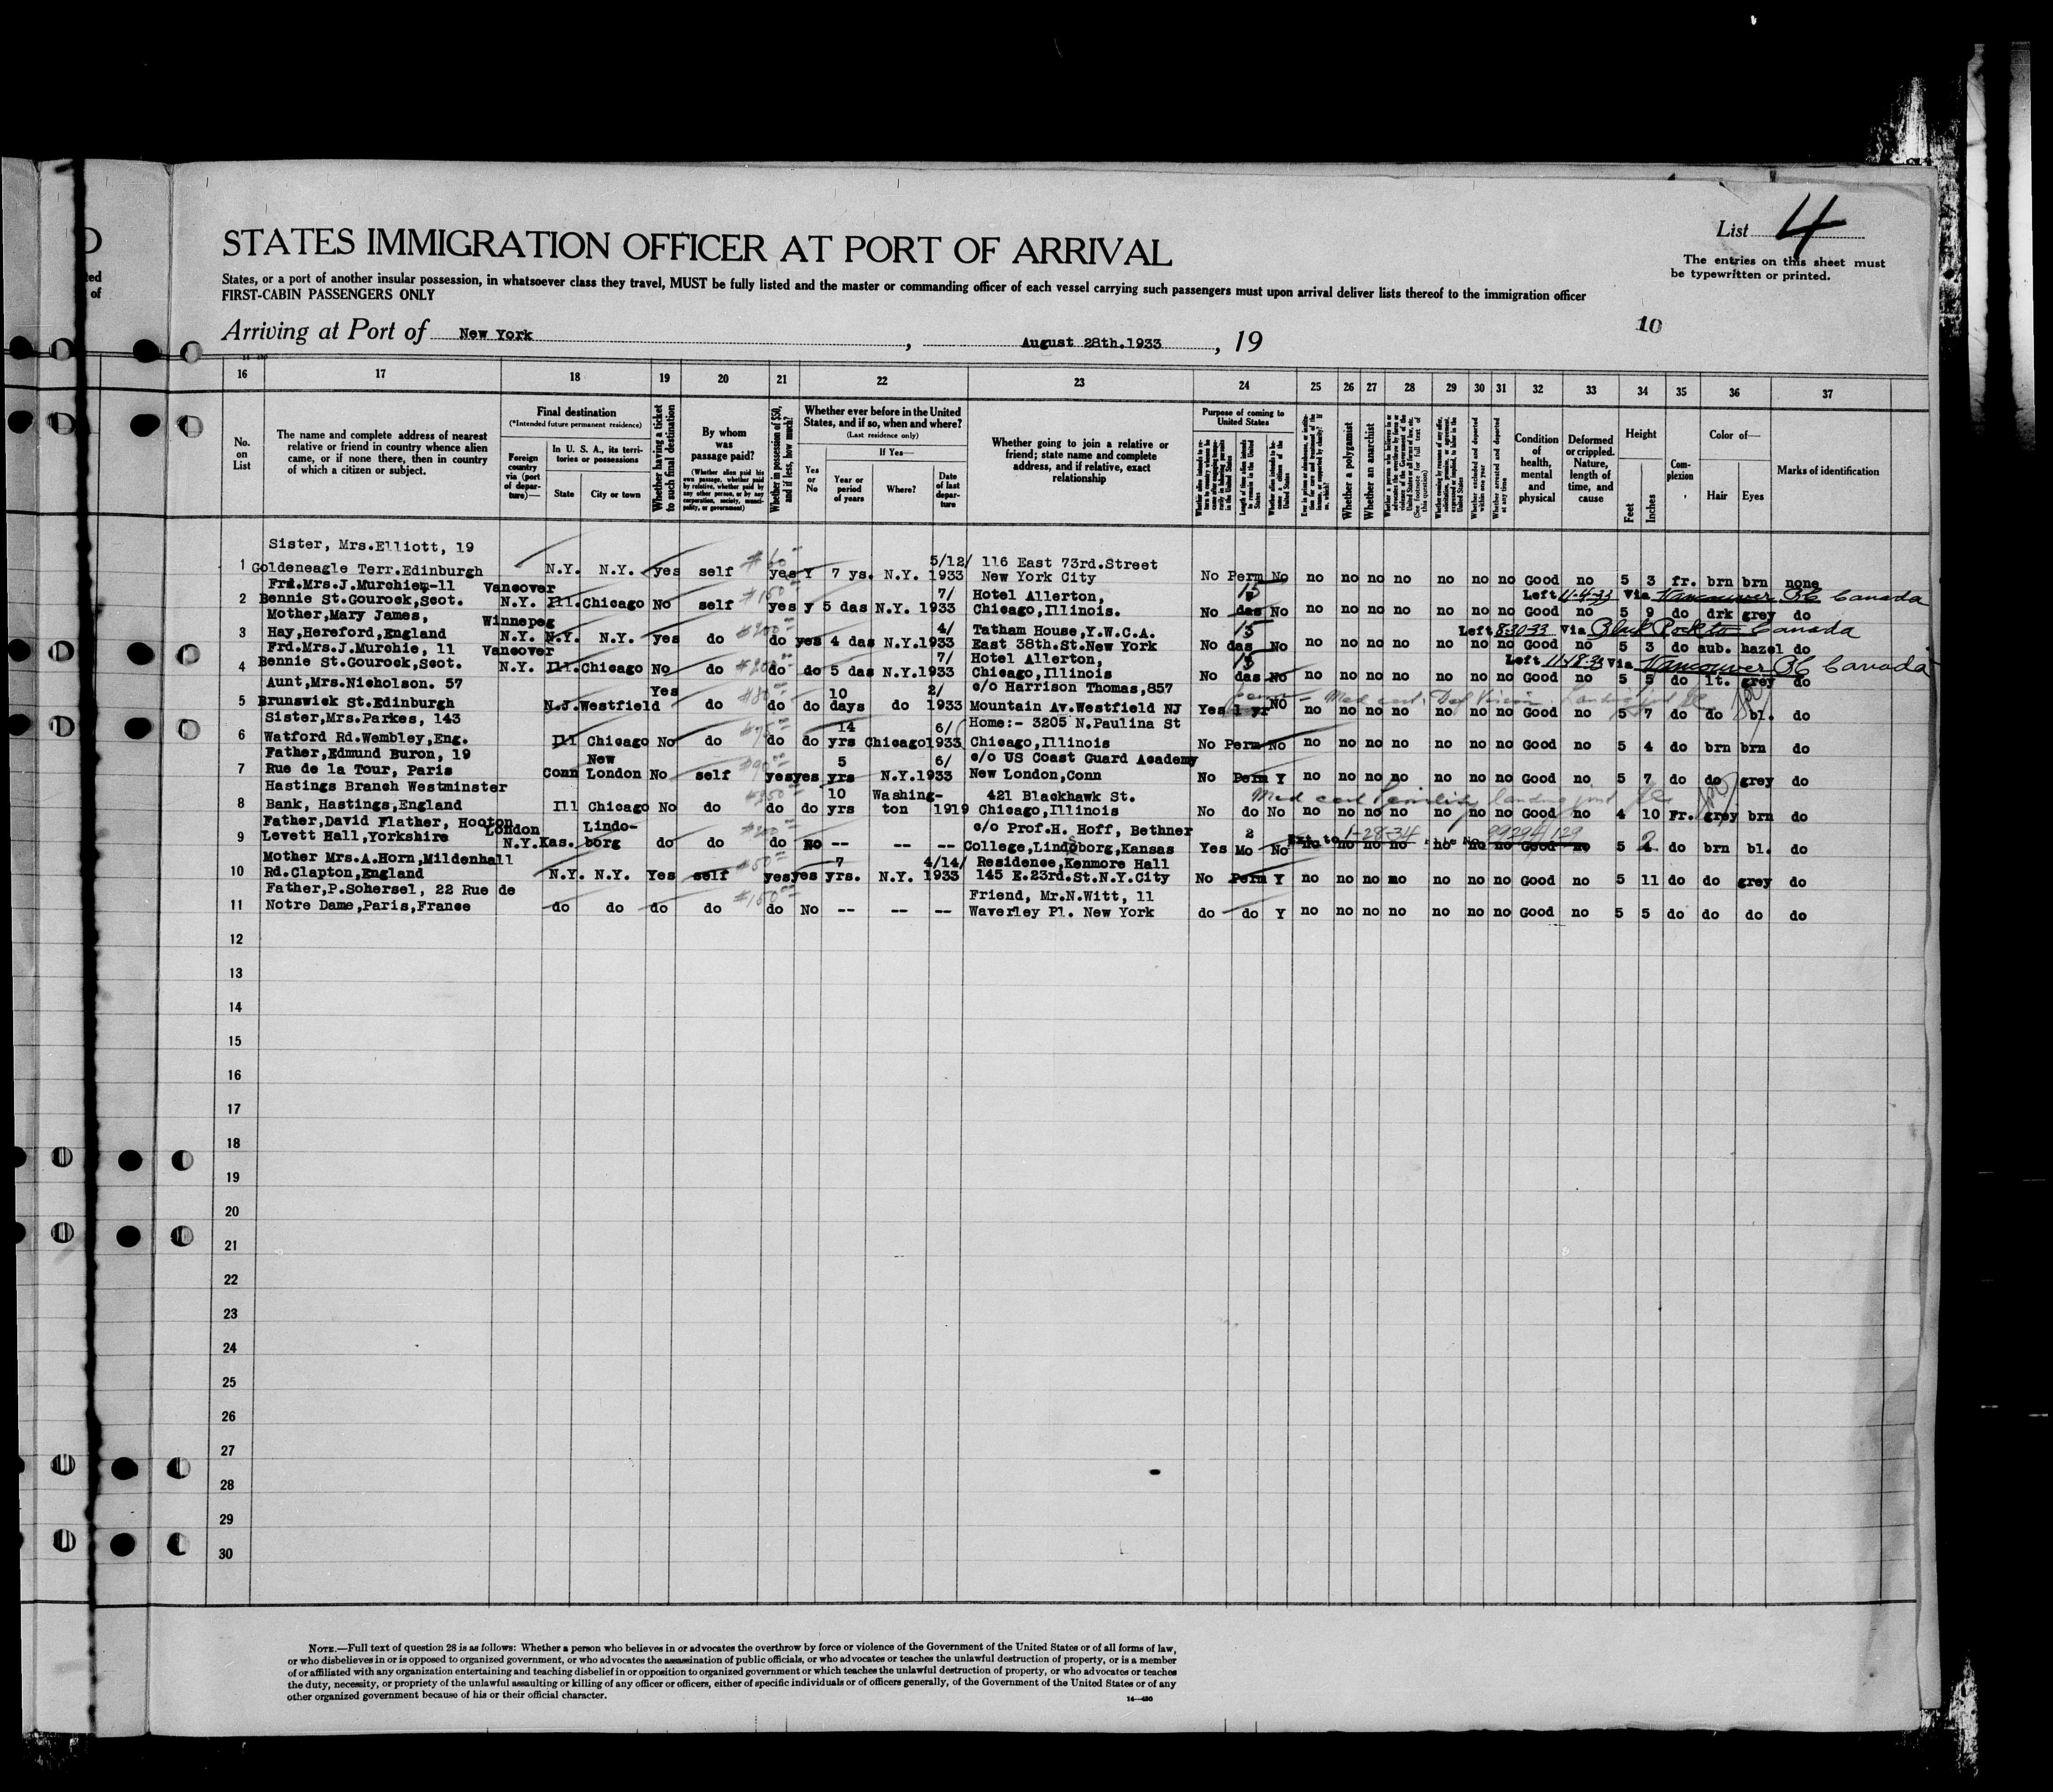 D
ted
of
STATES IMMIGRATION OFFICER AT PORT OF ARRIVAL
List 4
The entries on this sheet must
be typewritten or printed.
States, or a port of another insular possession, in whatsoever class they travel, MUST be fully listed and the master or commanding officer of each vessel carrying such passengers must upon arrival deliver lists thereof to the immigration officer
FIRST-CABIN PASSENGERS ONLY
Arriving at Port of New York, August 28th.1933, 19
10
16 17 18 19 20 21 22 23 24 25 26 27 28 29 30 31 32 33 34 35 36 37
No. on List
The name and complete address of nearest relative or friend in country whence alien came, or if none there, then in country of which a citizen or subject.
Final destination
(*Intended future permanent residence)
Foreign country via (port of departure)—
In U. S. A., its territories or possessions
State
City or town
Whether having a ticket to such final destination
By whom was passage paid?
(Whether alien paid his own passage, whether paid by relative, whether paid by any other person, or by any corporation, society, municipality, or government)
Whether in possession of $50, and if less, how much?
Whether ever before in the United States, and if so, when and where?
(Last residence only)
Yes or No
If Yes—
Year or period of years
Where?
Date of last departure
Whether going to join a relative or friend; state name and complete address, and if relative, exact relationship
Purpose of coming to United States
Whether a polygamist
Whether an anarchist
Condition of health, mental and physical
Deformed or crippled. Nature, length of time, and cause
Height
Feet
Inches
Complexion
Color of—
Hair
Eyes
Marks of identification
Sister, Mrs.Elliott, 19 5/12/ 116 East 73rd.Street
1 Goldeneagle Terr.Edinburgh N.Y. N.Y. yes self $60 yes Y 7 ys. N.Y. 1933 New York City No Perm No no no no no no no no Good no 5 3 fr. brn brn none
Frd.Mrs.J.Murchie-11 Vancover $150 7/ Hotel Allerton, 15 Left 11-4-33 Via Vancouver BC Canada
2 Bennie St.Gourock,Scot. N.Y. Ill.Chicago No self yes y 5 das N.Y. 1933 Chicago,Illinois. No das No no no no no no no no Good no 5 9 do drk grey do
Mother,Mary James, Winnepeg $200 4/ Tatham House,Y.W.C.A. 15 Left 8-30-33 Via Black Rock to Canada
3 Hay,Hereford,England N.Y. N.Y. N.Y. yes do do yes 4 das N.Y.1933 East 38th.St.New York No das No no no no no no no no Good no 5 3 do aub. hazel do
Frd.Mrs.J.Murchie, 11 Vancover $200 7/ Hotel Allerton, 15 Left 11-18-33 Via Vancouver BC Canada
4 Bennie St.Gourock,Scot. N.Y. Ill.Chicago No do do do 5 das N.Y.1933 Chicago,Illinois No das No no no no no no no no Good no 5 5 do lt. grey do
Aunt,Mrs.Nicholson. 57 Yes $80 10 2/ c/o Harrison Thomas,857
5 Brunswick St.Edinburgh N.J.Westfield do do do days do 1933 Mountain Av.Westfield NJ Yes 1 yr NO no no no no no no no Good no 5 7 do do bl. do
Sister,Mrs.Parkes, 143 14 6/ Home:- 3205 N.Paulina St
6 Watford Rd.Wembley,Eng. Ill Chicago No do $75 do do yrs Chicago1933 Chicago,Illinois No Perm No no no no no no no no Good no 5 4 do brn brn do
Father,Edmund Buron, 19 New 5 6/ c/o US Coast Guard Academy
7 Rue de la Tour, Paris Conn London No self $90 yes yes yrs N.Y.1933 New London,Conn No Perm Y no no no no no no no Good no 5 7 do do grey do
Hastings Branch Westminster 10 Washing- 421 Blackhawk St. Med cert Senility landing
8 Bank, Hastings,England Ill Chicago No do do do yrs ton 1919 Chicago,Illinois No do No no no no no no no no Good no 4 10 Fr. grey brn do
Father,David Flather, Hooton London Lindo- $200 c/o Prof.H. Hoff, Bethner 2 Ext to 1-28-34 99294/129
9 Levett Hall,Yorkshire N.Y.Kas. borg do do do No -- -- -- College,Lindsborg,Kansas Yes Mo No no no no no no no no Good no 5 2 do brn bl. do
Mother Mrs.A.Horn,Mildenhall $50 7 4/14/ Residence,Kenmore Hall
10 Rd.Clapton,England N.Y. N.Y. Yes self yes yes yrs. N.Y. 1933 145 E.23rd.St.N.Y.City No Perm Y no no no no no no no Good no 5 11 do do grey do
Father,P.Schersel, 22 Rue de $150 Friend, Mr.N.Witt, 11
11 Notre Dame,Paris,France do do do do do No -- -- -- Waverley Pl. New York do do Y no no no no no no no Good no 5 5 do do do do
12
13
14
15
16
17
18
19
20
21
22
23
24
25
26
27
28
29
30
NOTE.—Full text of question 28 is as follows: Whether a person who believes in or advocates the overthrow by force or violence of the Government of the United States or of all forms of law,
or who disbelieves in or is opposed to organized government, or who advocates the assassination of public officials, or who advocates or teaches the unlawful destruction of property, or is a member
of or affiliated with any organization entertaining and teaching disbelief in or opposition to organized government or which teaches the unlawful destruction of property, or who advocates or teaches
the duty, necessity, or propriety of the unlawful assaulting or killing of any officer or officers, either of specific individuals or of officers generally, of the Government of the United States or of any
other organized government because of his or their official character.
14—430